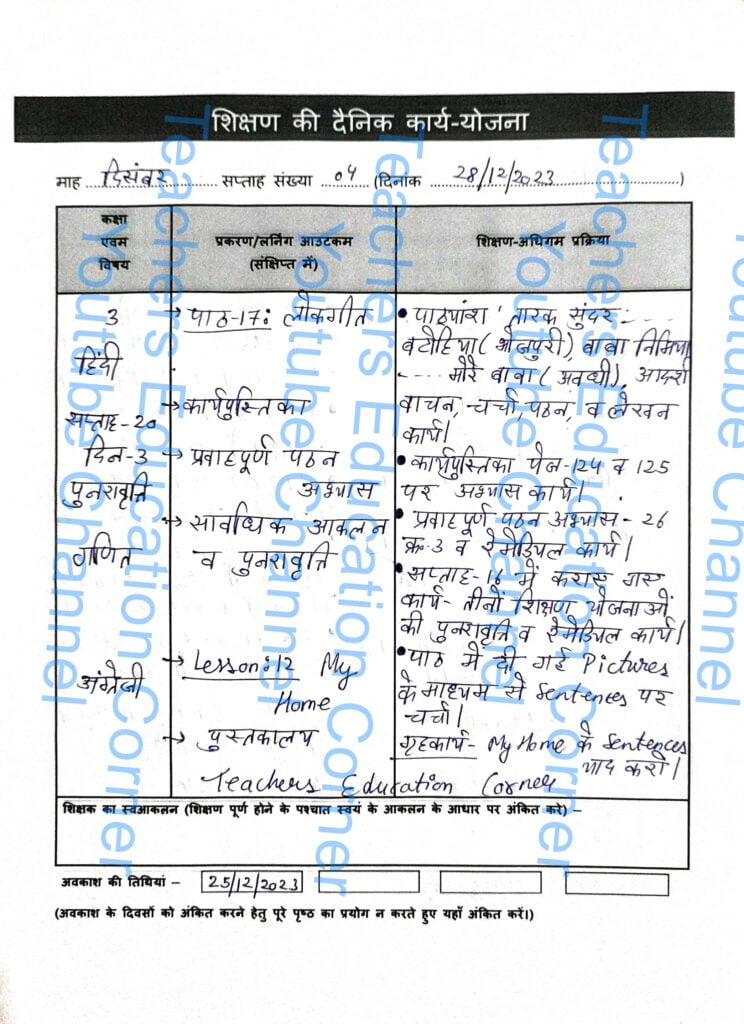 शिक्षण की दैनिक कार्य-योजना
माह दिसंबर सप्ताह संख्या 04 (दिनांक 28/12/2023)
कक्षा एवम विषय
प्रकरण/लर्निंग आउटकम (संक्षिप्त में)
शिक्षण-अधिगम प्रक्रिया
3
हिंदी
सप्ताह-20
दिन-3
पुनरावृत्ति
गणित
अंग्रेजी
→ पाठ-17: लोकगीत
→ कार्यपुस्तिका
→ प्रवाहपूर्ण पठन
अभ्यास
→ सावधिक आकलन
व पुनरावृत्ति
→ Lesson:12 My
Home
→ पुस्तकालय
• पाठ्यांश 'तारक सुंदर
बटोहिया (भोजपुरी), बाबा निमिया
---- मोरे बाबा (अवधी), आदर्श
वाचन, चर्चा, पठन, व लेखन
कार्य।
• कार्यपुस्तिका पेज-124 व 125
पर अभ्यास कार्य।
• प्रवाहपूर्ण पठन अभ्यास-26
क्र.3 व रेमेडियल कार्य।
• सप्ताह-16 में कराए गए
कार्य- तीनों शिक्षण योजनाओं
की पुनरावृत्ति व रेमेडियल कार्य।
• पाठ में दी गई Pictures
के माध्यम से Sentences पर
चर्चा।
गृहकार्य- My Home के Sentences
याद करो।
Teachers Education Corner
शिक्षक का स्वआकलन (शिक्षण पूर्ण होने के पश्चात स्वयं के आकलन के आधार पर अंकित करे) –
अवकाश की तिथियां – 25/12/2023
(अवकाश के दिवसों को अंकित करने हेतु पूरे पृष्ठ का प्रयोग न करते हुए यहाँ अंकित करें।)
Teachers Education Corner
Youtube Channel
Teachers Education Corner
Youtube Channel
Teachers Education Corner
Youtube Channel